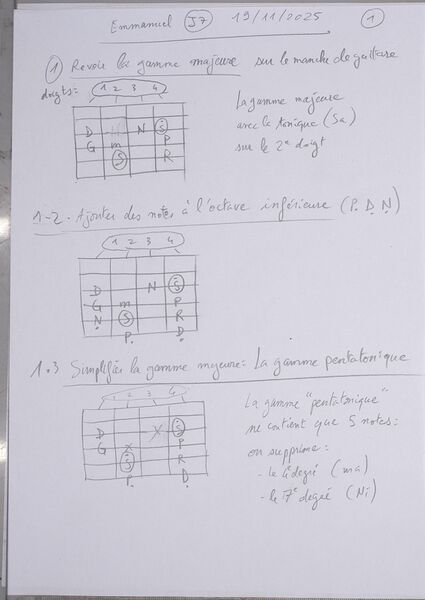 Emmanuel J7 19/11/2025 1
1 Revoir la gamme majeure sur le manche de guitare
doigts: 1 2 3 4
La gamme majeure
avec la tonique (Sa)
sur le 2e doigt
D N S
G m P
S R
1-2. Ajouter des notes à l'octave inférieure (P. D. N.)
1 2 3 4
D N S
G m P
N S R
P D
1.3 Simplifier la gamme majeure: La gamme pentatonique
1 2 3 4
La gamme "pentatonique"
ne contient que 5 notes:
on supprime:
- le 4e degré (ma)
- le 7e degré (Ni)
D X S
G X P
S R
P D